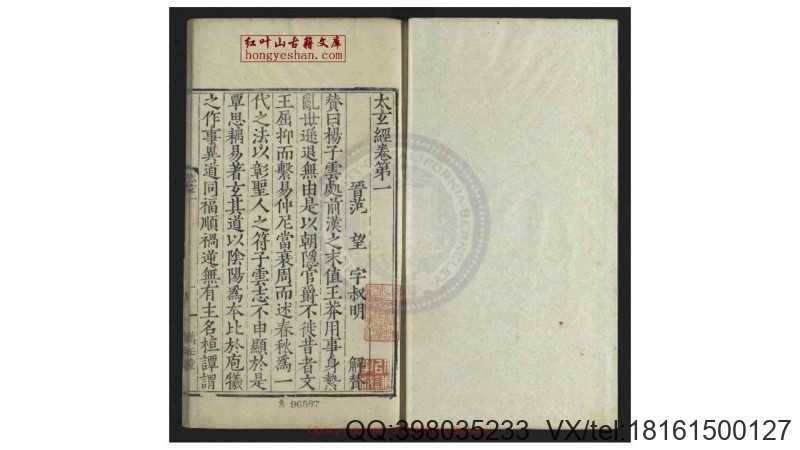 红叶山古籍文库
hongyeshan.com
太玄經卷第一
晉范望字叔明 解贊
贊曰楊子雲處前漢之末值王莽用事身縶
亂世遜退無由是以朝隱官爵不徙昔者文
王屈抑而繫易仲尼當衰周而述春秋爲一
代之法以彰聖人之符子雲志不申顯於是
覃思耦易著玄其道以陰陽爲本比於庖犧
之作事異道同福順禍逆無有主名桓譚謂
96587
QQ:398035233 VX/tel:18161500127